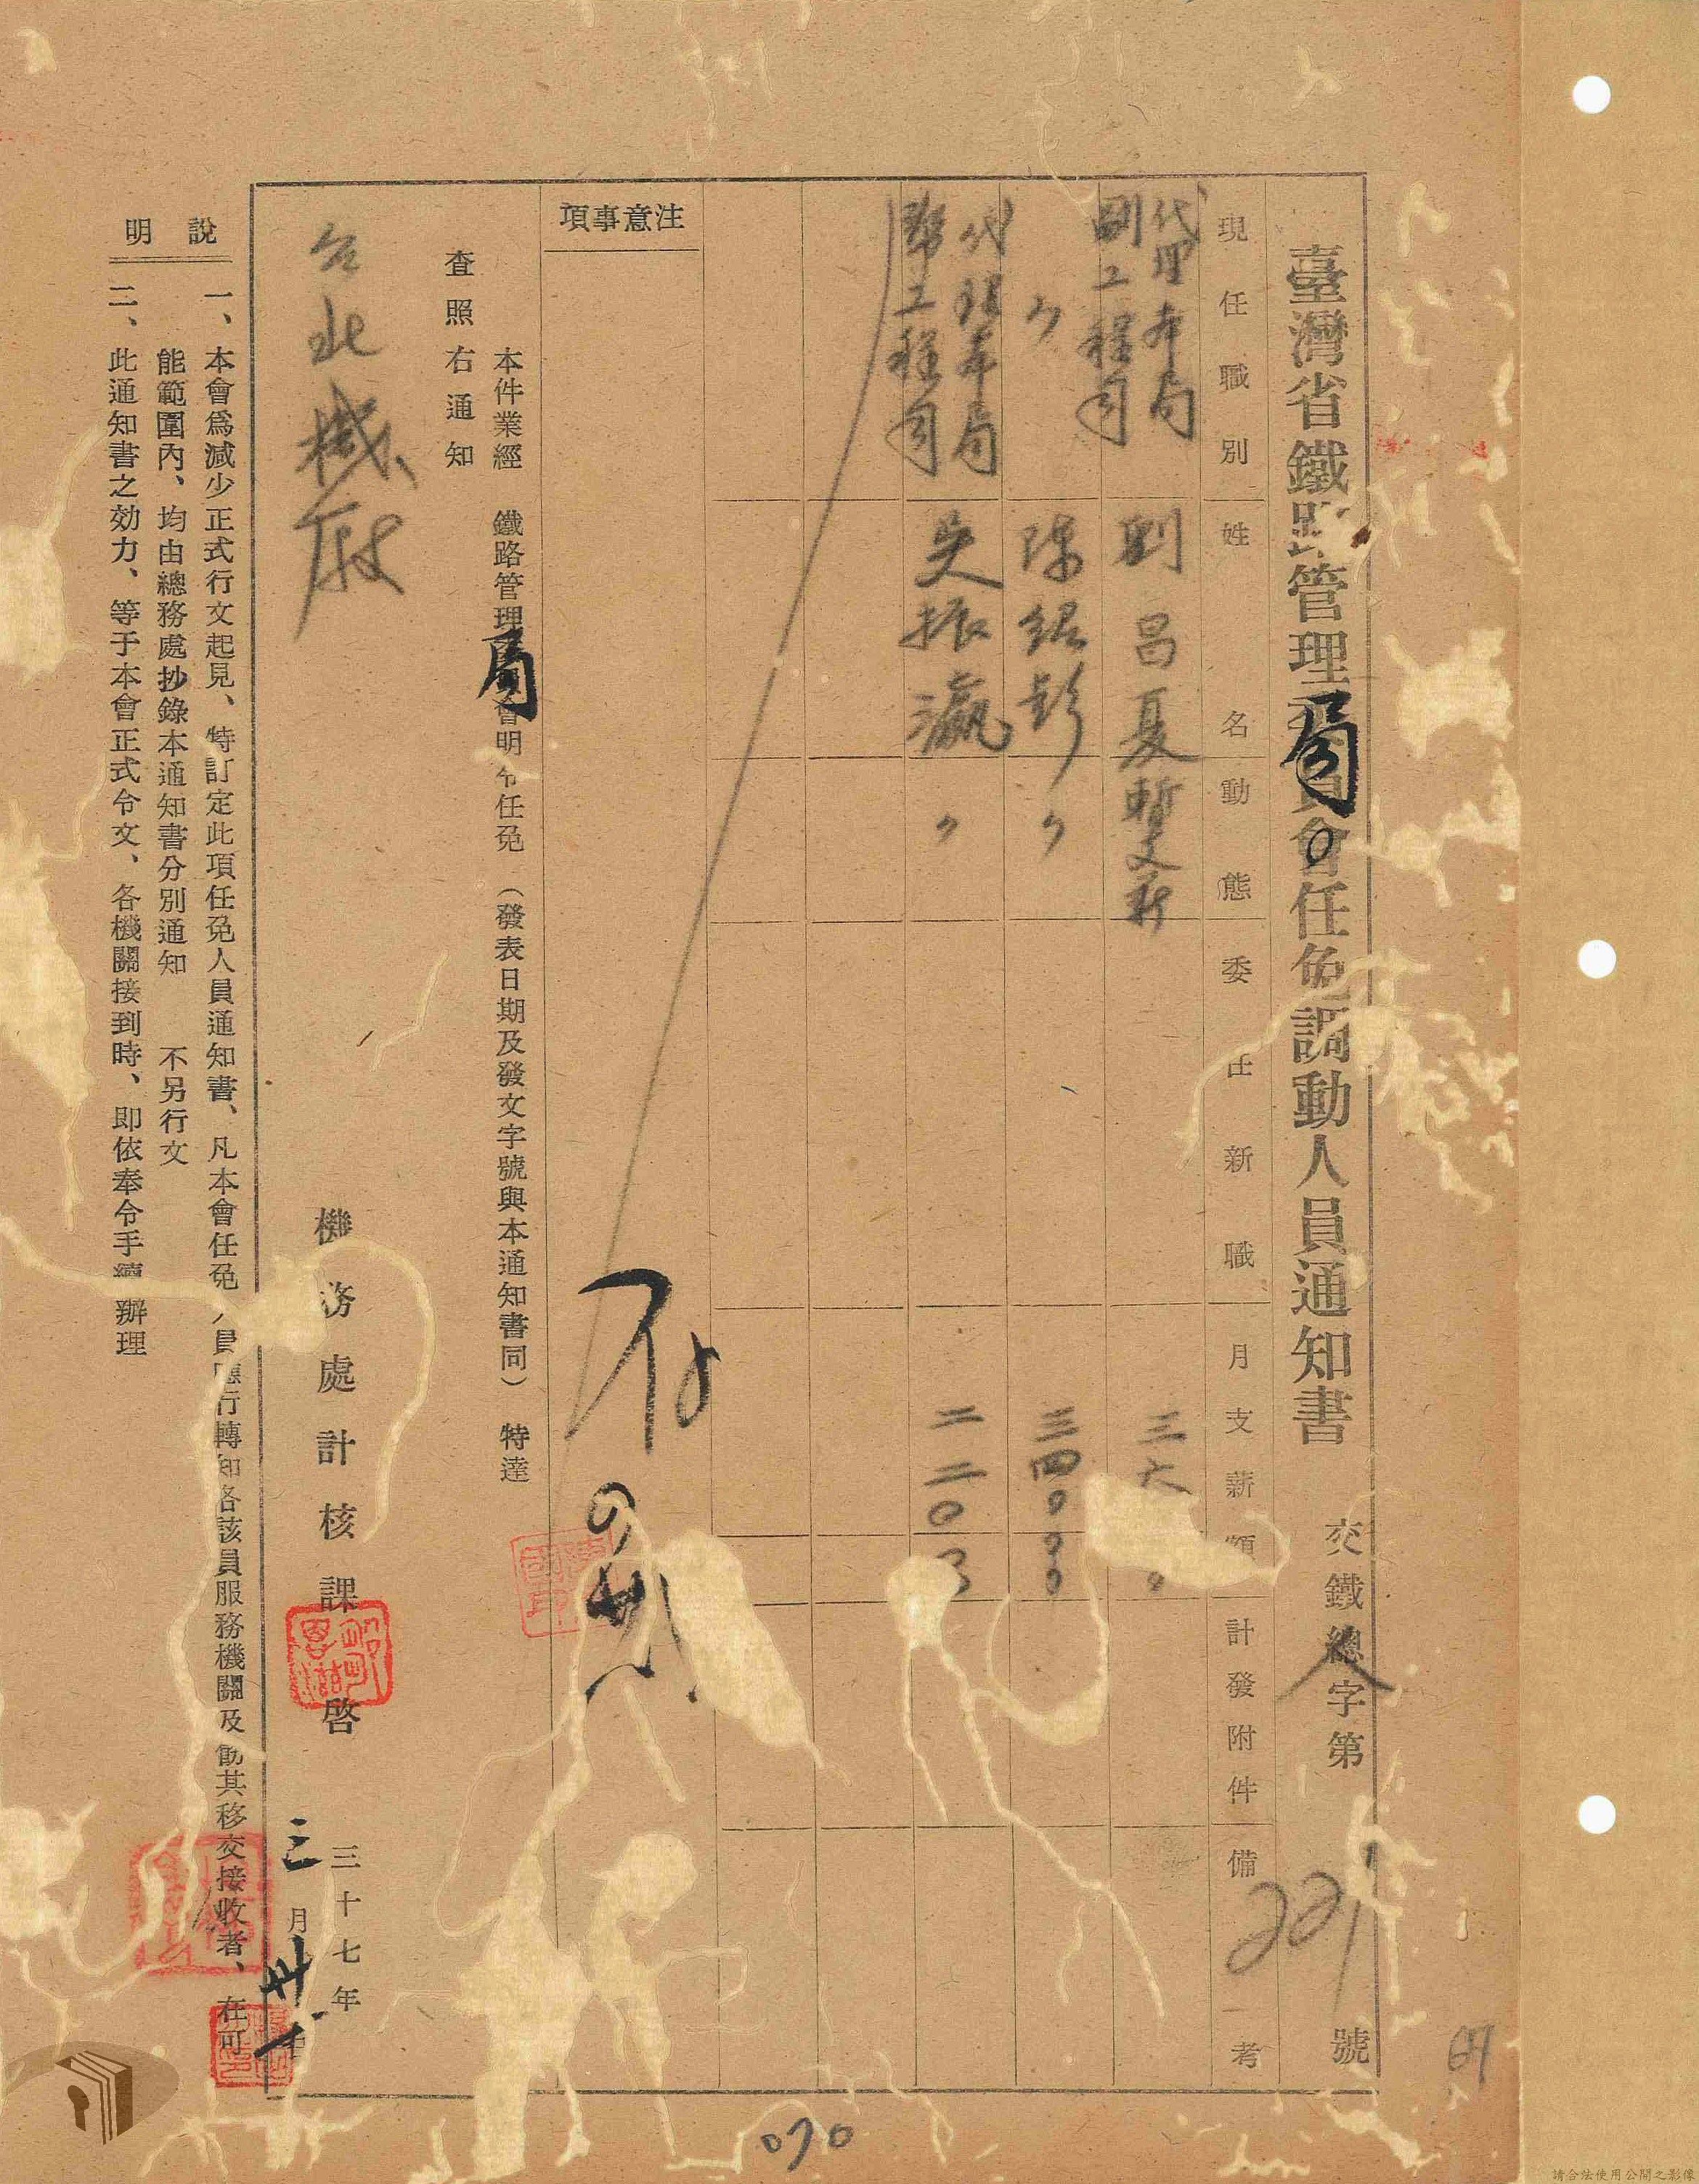 臺灣省鐵路管理局任免調動人員通知書
交鐵總人字第221號
現任職別 姓名 動態 委任新職 月支薪額 計發附件 備考
代理本局副工程司 劉昌夏 暫支薪 三六
〃 陳紹彭 〃 三四〇〇〇
代理本局幫工程司 吳振瀛 〃 二二〇
注意事項
本件業經 鐵路管理局會明令任免(發表日期及發文字號與本通知書同) 特達
查照右通知
台北機廠
機務處計核課啓
三十七年
三月卅一日
說明
一、本會爲減少正式行文起見、特訂定此項任免人員通知書、凡本會任免人員應行轉知各該員服務機關及飭其移交接收者、在可
能範圍內、均由總務處抄錄本通知書分別通知 不另行文
二、此通知書之効力、等于本會正式令文、各機關接到時、即依奉令手續辦理
070
請合法使用公開之影像